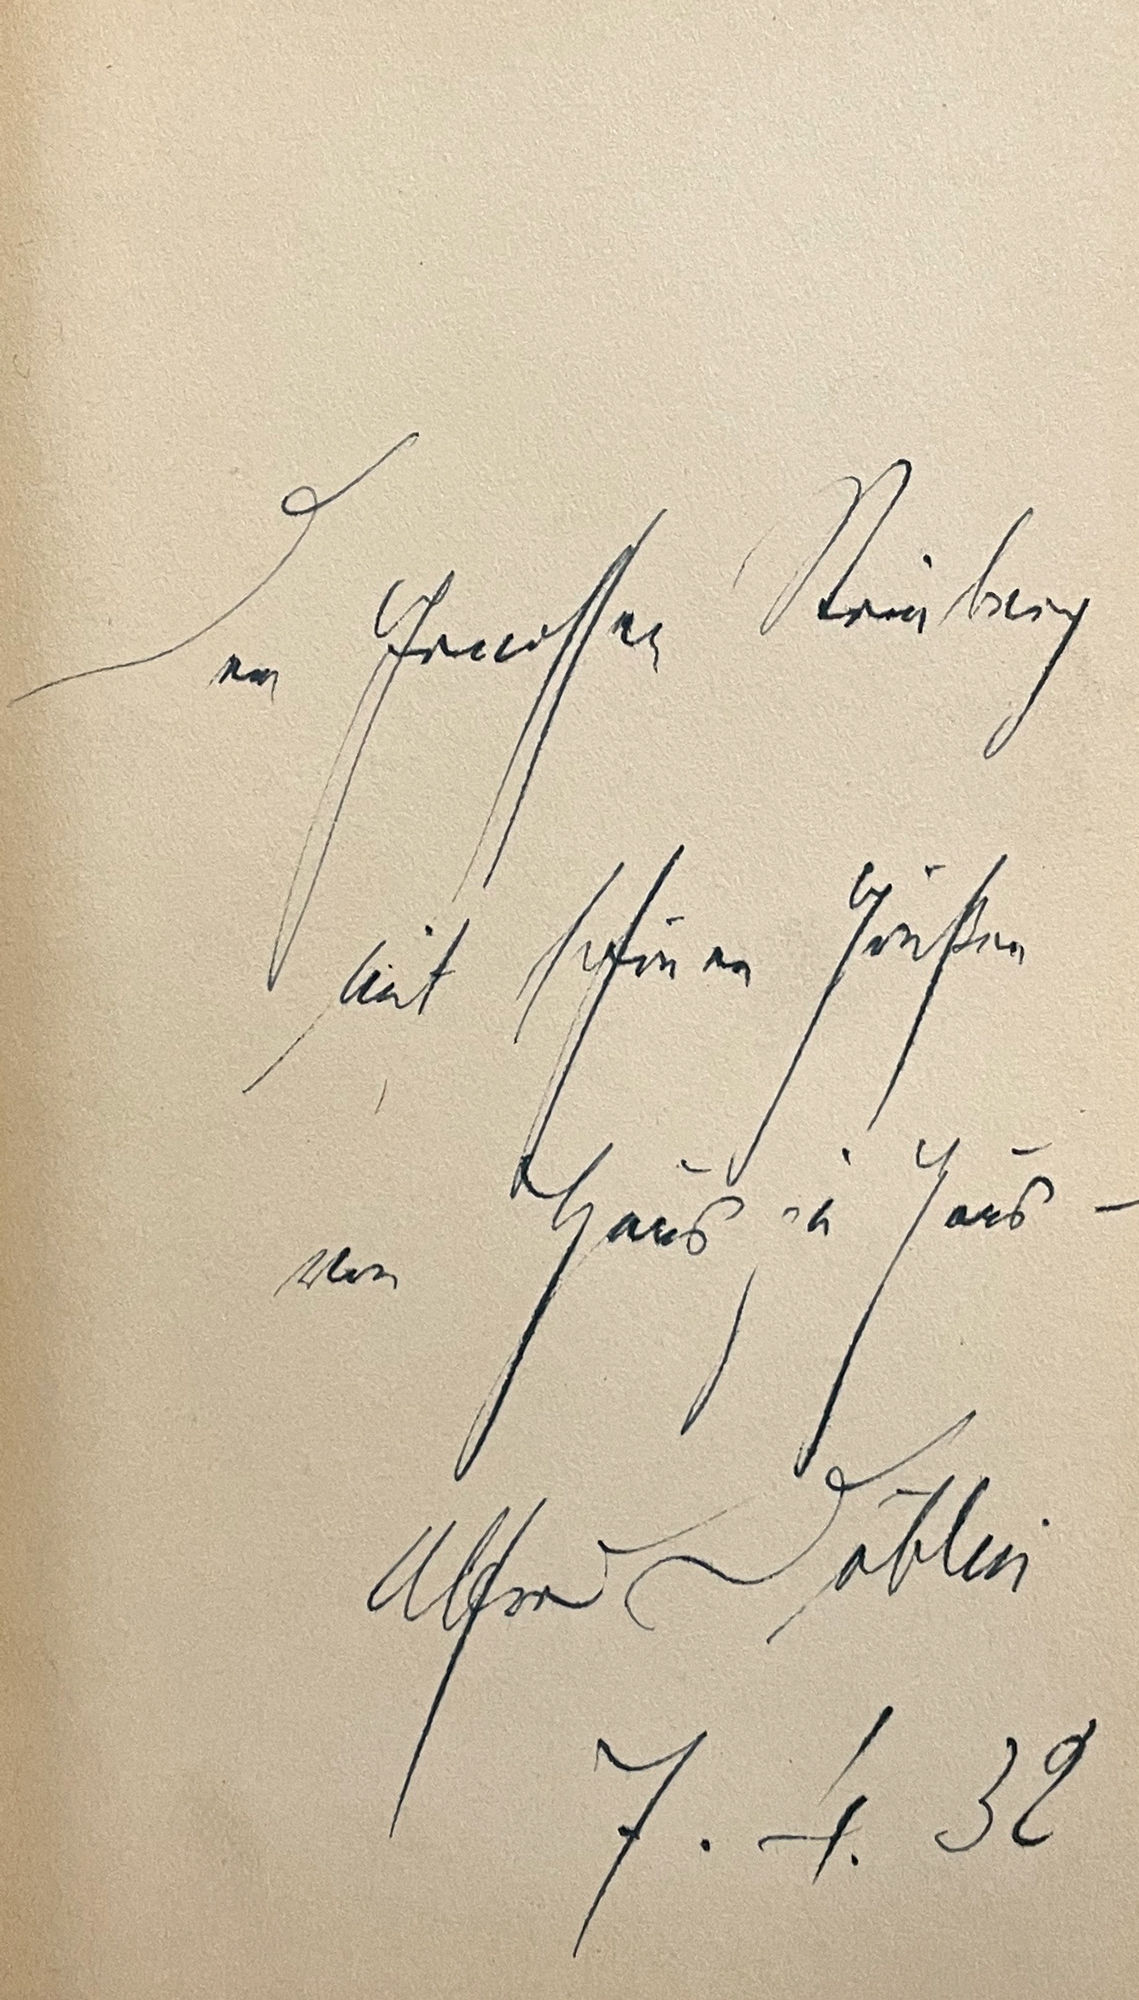 Dem Genossen Steinberg
mit schönen Grüßen
von Haus zu Haus –
Alfred Döblin
7. 4. 32